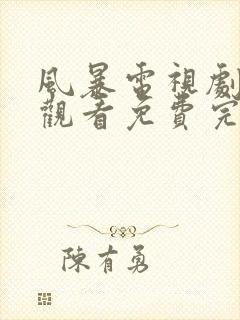 風暴電視劇
觀看免費完
陳有勇